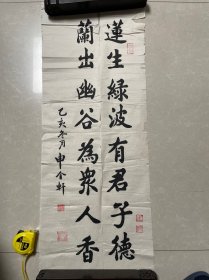 蓮生綠波有君子德
蘭出幽谷為衆人香
乙亥冬月申令軒